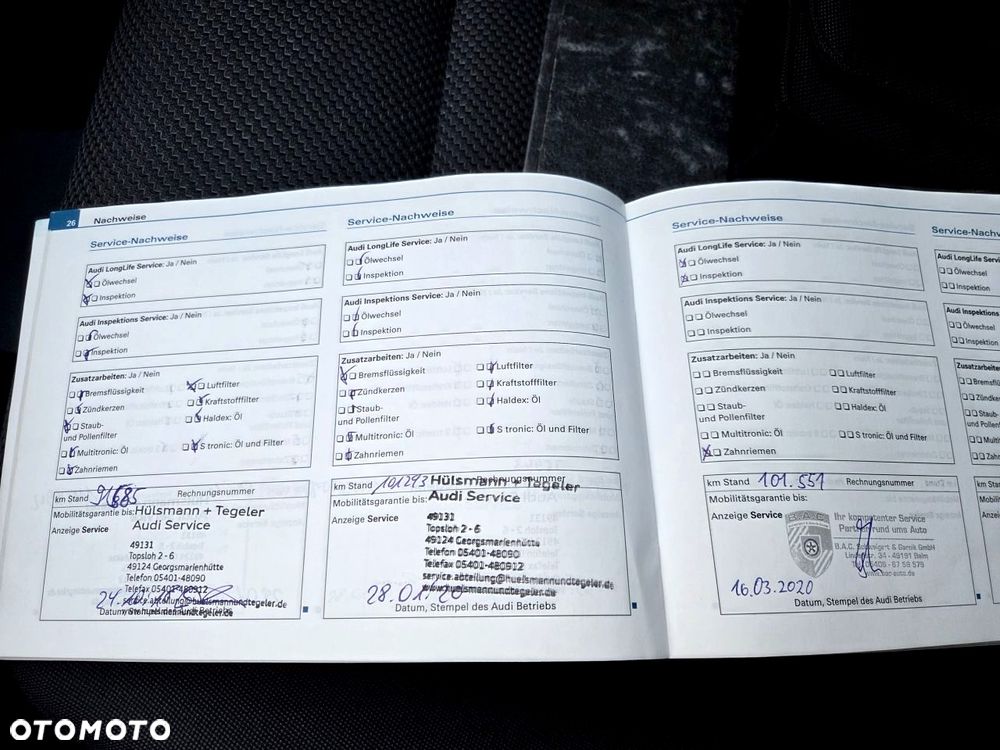 26 Nachweise
Service-Nachweise
Audi LongLife Service: Ja / Nein
Ölwechsel
Inspektion
Audi Inspektions Service: Ja / Nein
Ölwechsel
Inspektion
Zusatzarbeiten: Ja / Nein
Bremsflüssigkeit
Luftfilter
Zündkerzen
Kraftstofffilter
Staub-
und Pollenfilter
Haldex: Öl
Multitronic: Öl
S tronic: Öl und Filter
Zahnriemen
km Stand 91685 Rechnungsnummer
Mobilitätsgarantie bis:
Hülsmann + Tegeler
Anzeige Service
Audi Service
49131
Topsloh 2 - 6
49124 Georgsmarienhütte
Telefon 05401-48090
Telefax 05401-480912
service.abteilung@huelsmannundtegeler.de
Service-Nachweise
Audi LongLife Service: Ja / Nein
Ölwechsel
Inspektion
Audi Inspektions Service: Ja / Nein
Ölwechsel
Inspektion
Zusatzarbeiten: Ja / Nein
Bremsflüssigkeit
Luftfilter
Zündkerzen
Kraftstofffilter
Staub-
und Pollenfilter
Haldex: Öl
Multitronic: Öl
S tronic: Öl und Filter
Zahnriemen
km Stand 101293 Rechnungsnummer
Hülsmann + Tegeler
Mobilitätsgarantie bis:
Audi Service
Anzeige Service
49131
Topsloh 2 - 6
49124 Georgsmarienhütte
Telefon 05401-48090
Telefax 05401-480912
service.abteilung@huelsmannundtegeler.de
www.huelsmannundtegeler.de
28.01.20
Datum, Stempel des Audi Betriebs
Service-Nachweise
Audi LongLife Service: Ja / Nein
Ölwechsel
Inspektion
Audi Inspektions Service: Ja / Nein
Ölwechsel
Inspektion
Zusatzarbeiten: Ja / Nein
Bremsflüssigkeit
Luftfilter
Zündkerzen
Kraftstofffilter
Staub-
und Pollenfilter
Haldex: Öl
Multitronic: Öl
S tronic: Öl und Filter
Zahnriemen
km Stand 101.551 Rechnungsnummer
Mobilitätsgarantie bis:
Anzeige Service
Ihr kompetenter Service
Partner rund ums Auto
16.03.2020
Datum, Stempel des Audi Betriebs
Service-Nachw
Audi LongLife Servi
Ölwechsel
Inspektion
Audi Inspektions
Ölwechsel
Inspektion
Zusatzarbeiten
Bremsflü
Zündkerz
Staub-
und Pollenfil
Multitro
Zahnri
km Stand
Mobilität
Anzei
OTOMOTO